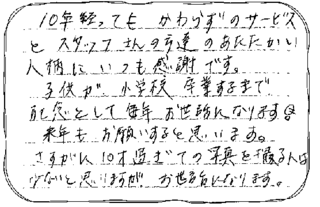 10年経っても かわらずのサービス
と スタッフさんの方達のあたたかい
人柄にいつも感謝です。
子供が 小学校 卒業するまで
記念として毎年 お世話になります
来年も お願いすると思います。
さすがに10才過ぎての写真を撮る人は
少ないと思いますが お世話になります。